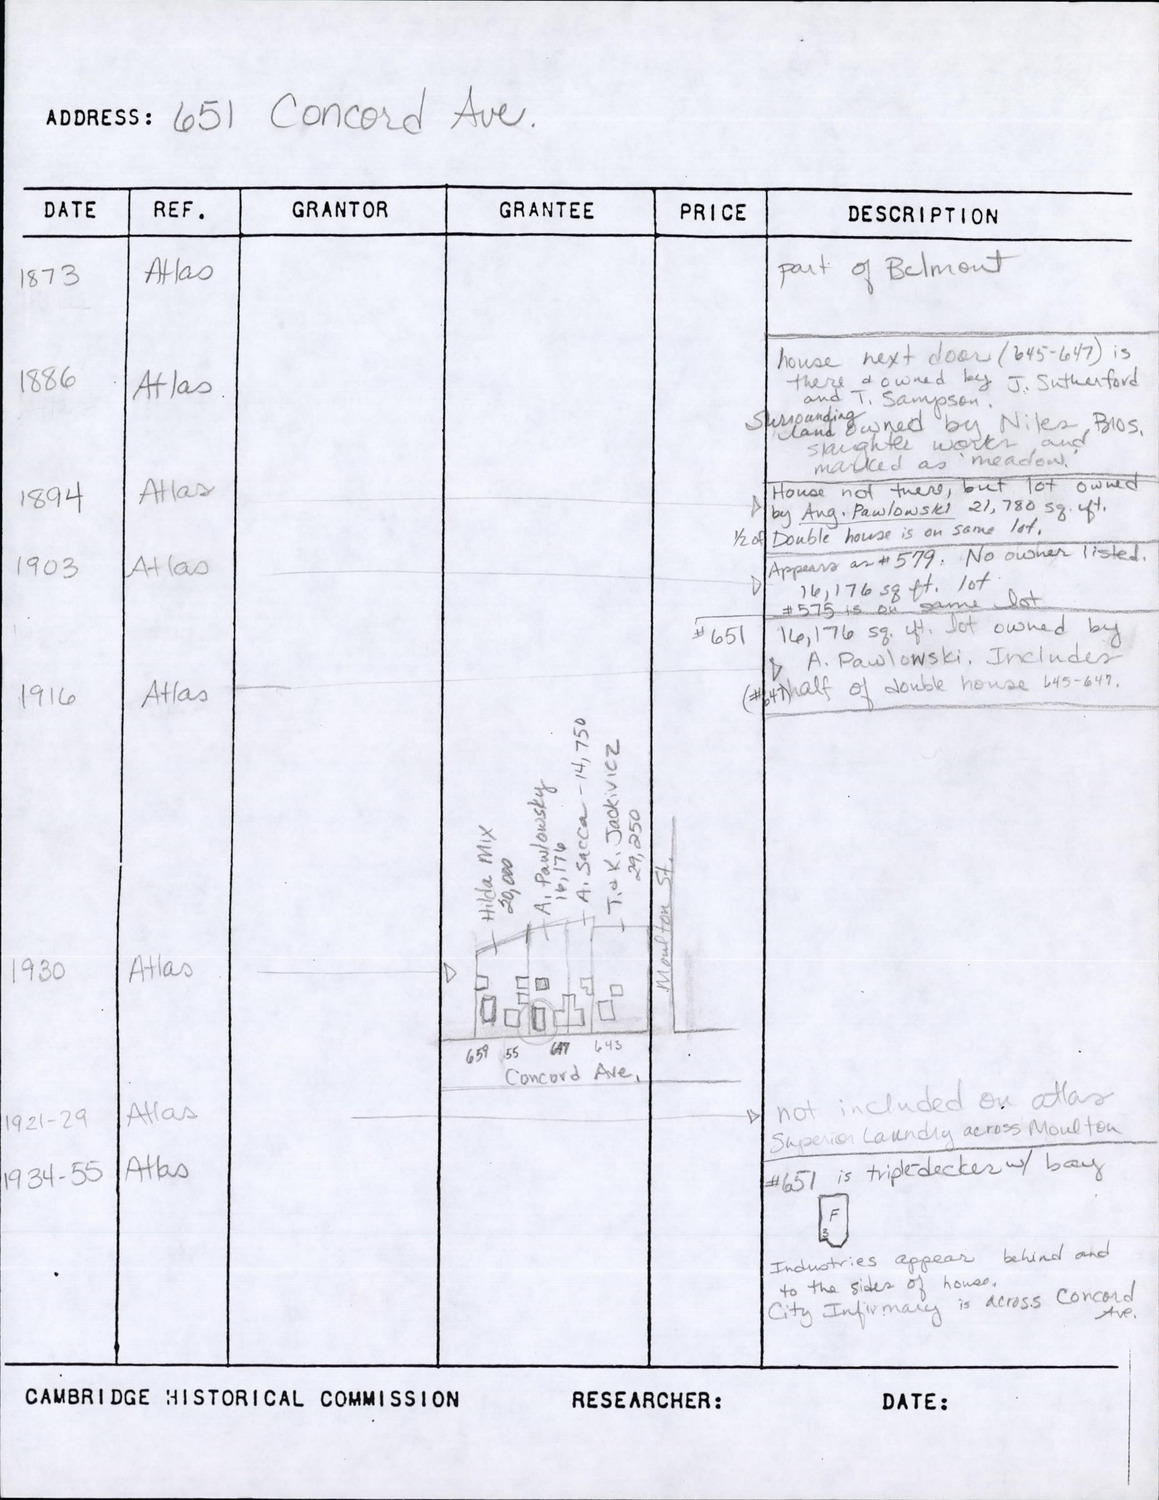 ADDRESS: 651 Concord Ave.
DATE REF. GRANTOR GRANTEE PRICE DESCRIPTION
1873 Atlas part of Belmont
1886 Atlas house next door (645-647) is
there & owned by J. Sutherford
and T. Sampson.
Surrounding
land owned by Niles Bros.
slaughter works and
marked as 'meadow.'
1894 Atlas House not there, but lot owned
by Aug. Pawlowski 21,780 sq. ft.
1/2 of Double house is on same lot.
1903 Atlas Appears as #579. No owner listed.
16,176 sq ft. lot
#575 is on same lot
1916 Atlas #651 16,176 sq. ft. lot owned by
A. Pawlowski. Includes
(#647) half of double house 645-647.
Hilda Mix
20,000
A. Pawlowsky
16,176
A. Sacca - 14,750
T. & K. Jackivicz
29,250
Moulton St.
1930 Atlas
659 55 647 643
Concord Ave.
1921-29 Atlas not included on atlas
Superior Laundry across Moulton
1934-55 Atlas #651 is triple-decker w/ bay
F
3
Industries appear behind and
to the sides of house.
City Infirmary is across Concord
Ave.
CAMBRIDGE HISTORICAL COMMISSION RESEARCHER: DATE: